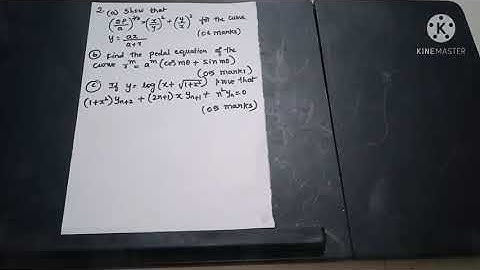 2. (a) Show that
(2ρ/a)^2/3 = (x/y)^2 + (y/x)^2 for the curve
y = ax/a+x (06 marks)
(b) Find the pedal equation of the
curve r^m = a^m (cos mθ + sin mθ)
(05 marks)
(c) If y = log(x + √1+x²) prove that
(1+x²) y_n+2 + (2n+1) x y_n+1 + n² y_n = 0
(05 marks)
KINEMASTER